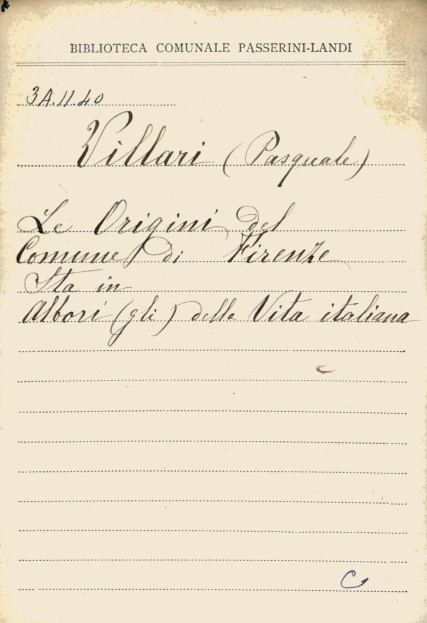 BIBLIOTECA COMUNALE PASSERINI-LANDI
3A.11.40
Villari (Pasquale)
Le Origini del
Comune di Firenze
Sta in
Albori (gli) della Vita italiana
C